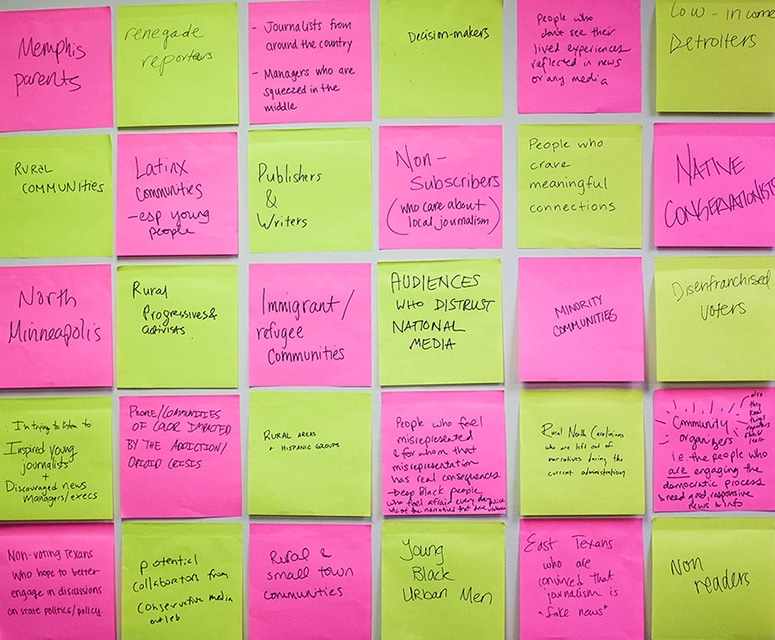 Memphis
parents
renegade
reporters
- Journalists from
around the country
- Managers who are
squeezed in the
middle
Decision-makers
People who
don't see their
lived experiences
reflected in news
or any media
Low-income
Detroiters
RURAL
COMMUNITIES
LATINX
Communities
- esp young
people
Publishers
&
Writers
Non-
Subscribers
(who care about
local journalism)
People who
crave
meaningful
connections
NATIVE
CONSERVATIONISTS
North
Minneapolis
Rural
Progressives &
activists
Immigrant/
refugee
Communities
AUDIENCES
WHO DISTRUST
NATIONAL
MEDIA
MINORITY
COMMUNITIES
Disenfranchised
Voters
I'm trying to listen to
Inspired young
journalists
+
Discouraged news
managers/execs
PEOPLE/COMMUNITIES
OF COLOR IMPACTED
BY THE ADDICTION/
OPIOID CRISIS
RURAL AREAS
+ HISPANIC GROUPS
People who feel
misrepresented
& for whom that
misrepresentation
has real consequences
- Deep Black people
who feel afraid every day
of the narratives that
Rural North Carolinians
who are left out of
narratives during the
current administration
Community
organizers
i.e. the people who
are engaging the
democratic process
& need good, responsive
news & info
also
they
know
things
reporters
should
Non-voting Texans
who hope to better
engage in discussions
on state politics/policy.
potential
collaborators from
conservative media
outlets
Rural &
small town
communities
Young
Black
Urban Men
East Texans
who are
convinced that
journalism is
"fake news"
Non
readers